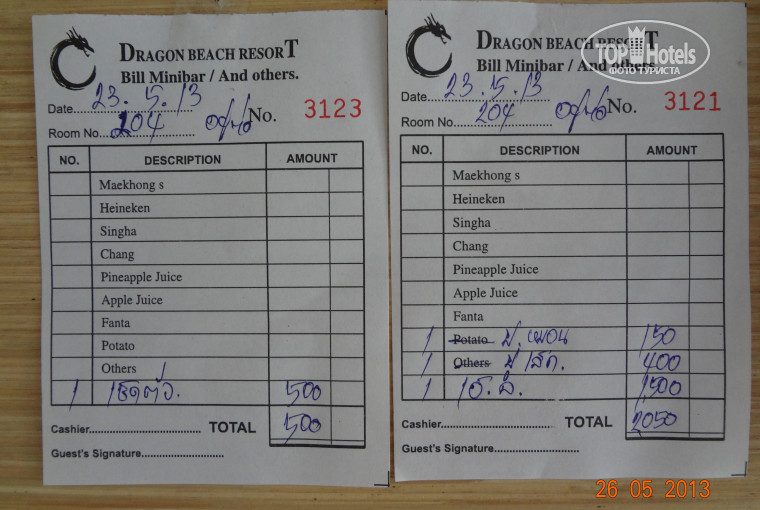 DRAGON BEACH RESORT
Bill Minibar / And others.
Date 23.5.13
Room No. 204 No. 3123
NO. DESCRIPTION AMOUNT
Maekhong s
Heineken
Singha
Chang
Pineapple Juice
Apple Juice
Fanta
Potato
Others
1 เช็ดตัว. 500
Cashier TOTAL 500
Guest's Signature
DRAGON BEACH RESORT
Bill Minibar / And others.
Date 23.5.13
Room No. 204 No. 3121
NO. DESCRIPTION AMOUNT
Maekhong s
Heineken
Singha
Chang
Pineapple Juice
Apple Juice
Fanta
1 Potato 150
1 Others 400
1 1,500
Cashier TOTAL 2,050
Guest's Signature
TOPHotels
ФОТО ТУРИСТА
26 05 2013